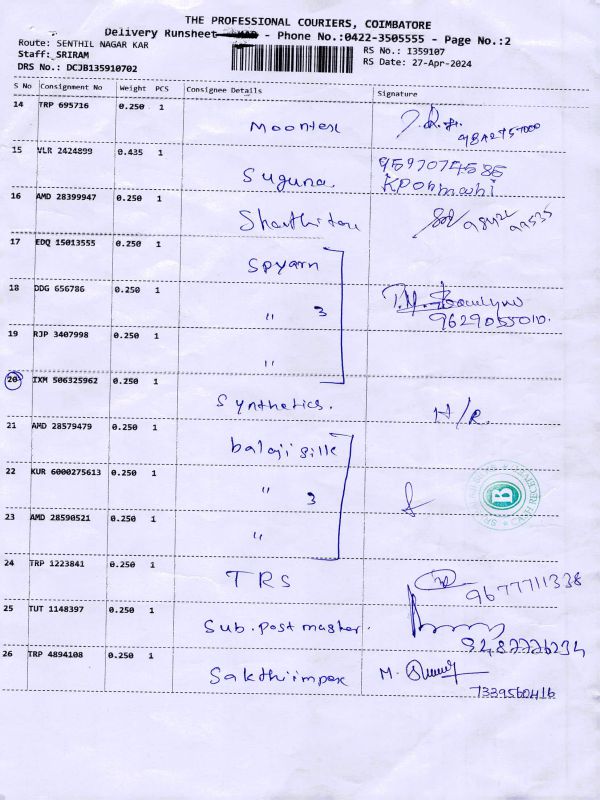 THE PROFESSIONAL COURIERS, COIMBATORE
Delivery Runsheet - Phone No.:0422-3505555 - Page No.:2
Route: SENTHIL NAGAR KAR
RS No.: I359107
Staff: SRIRAM
RS Date: 27-Apr-2024
DRS No.: DCJB135910702
S No Consignment No Weight PCS Consignee Details Signature
14 TRP 695716 0.250 1
Moontex
15 VLR 2424899 0.435 1
Suguna. 9597074586
16 AMD 28399947 0.250 1
17 EDQ 15013555 0.250 1
Spyarn
18 DDG 656786 0.250 1
" 3
9629055010.
19 RJP 3407998 0.250 1
"
20 IXM 506325962 0.250 1
Synthetics. H/R.
21 AMD 28579479 0.250 1
balaji sille
22 KUR 6000275613 0.250 1
" 3
23 AMD 28590521 0.250 1
"
24 TRP 1223841 0.250 1
TRS 9677711338
25 TUT 1148397 0.250 1
Sub.post master.
26 TRP 4894108 0.250 1
Sakthiimpex M.
7339560416